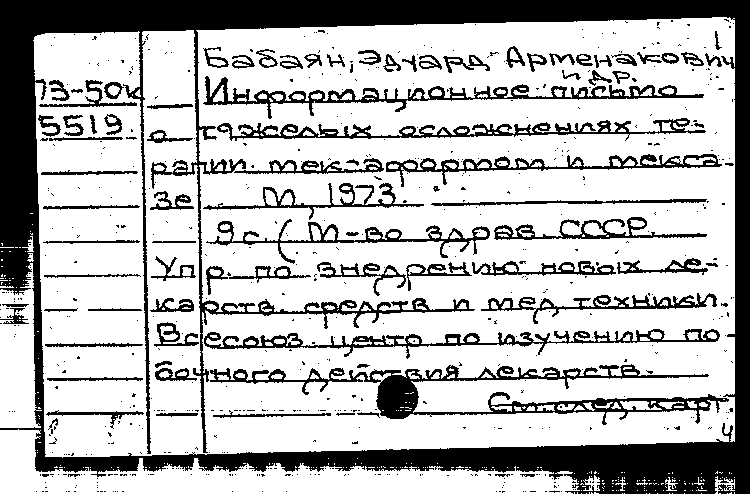 Бабаян, Эдуард Артенакович
и др.
73-50к Информационное письмо
5519 о тяжелых осложнениях те-
рапии мексаформом и мекса-
зе М., 1973.
9с. (М-во здрав. СССР.
Упр. по внедрению новых ле-
карств. средств и мед, техники.
Всесоюз. центр по изучению по-
бочного действия лекарств.
См. след. карт.